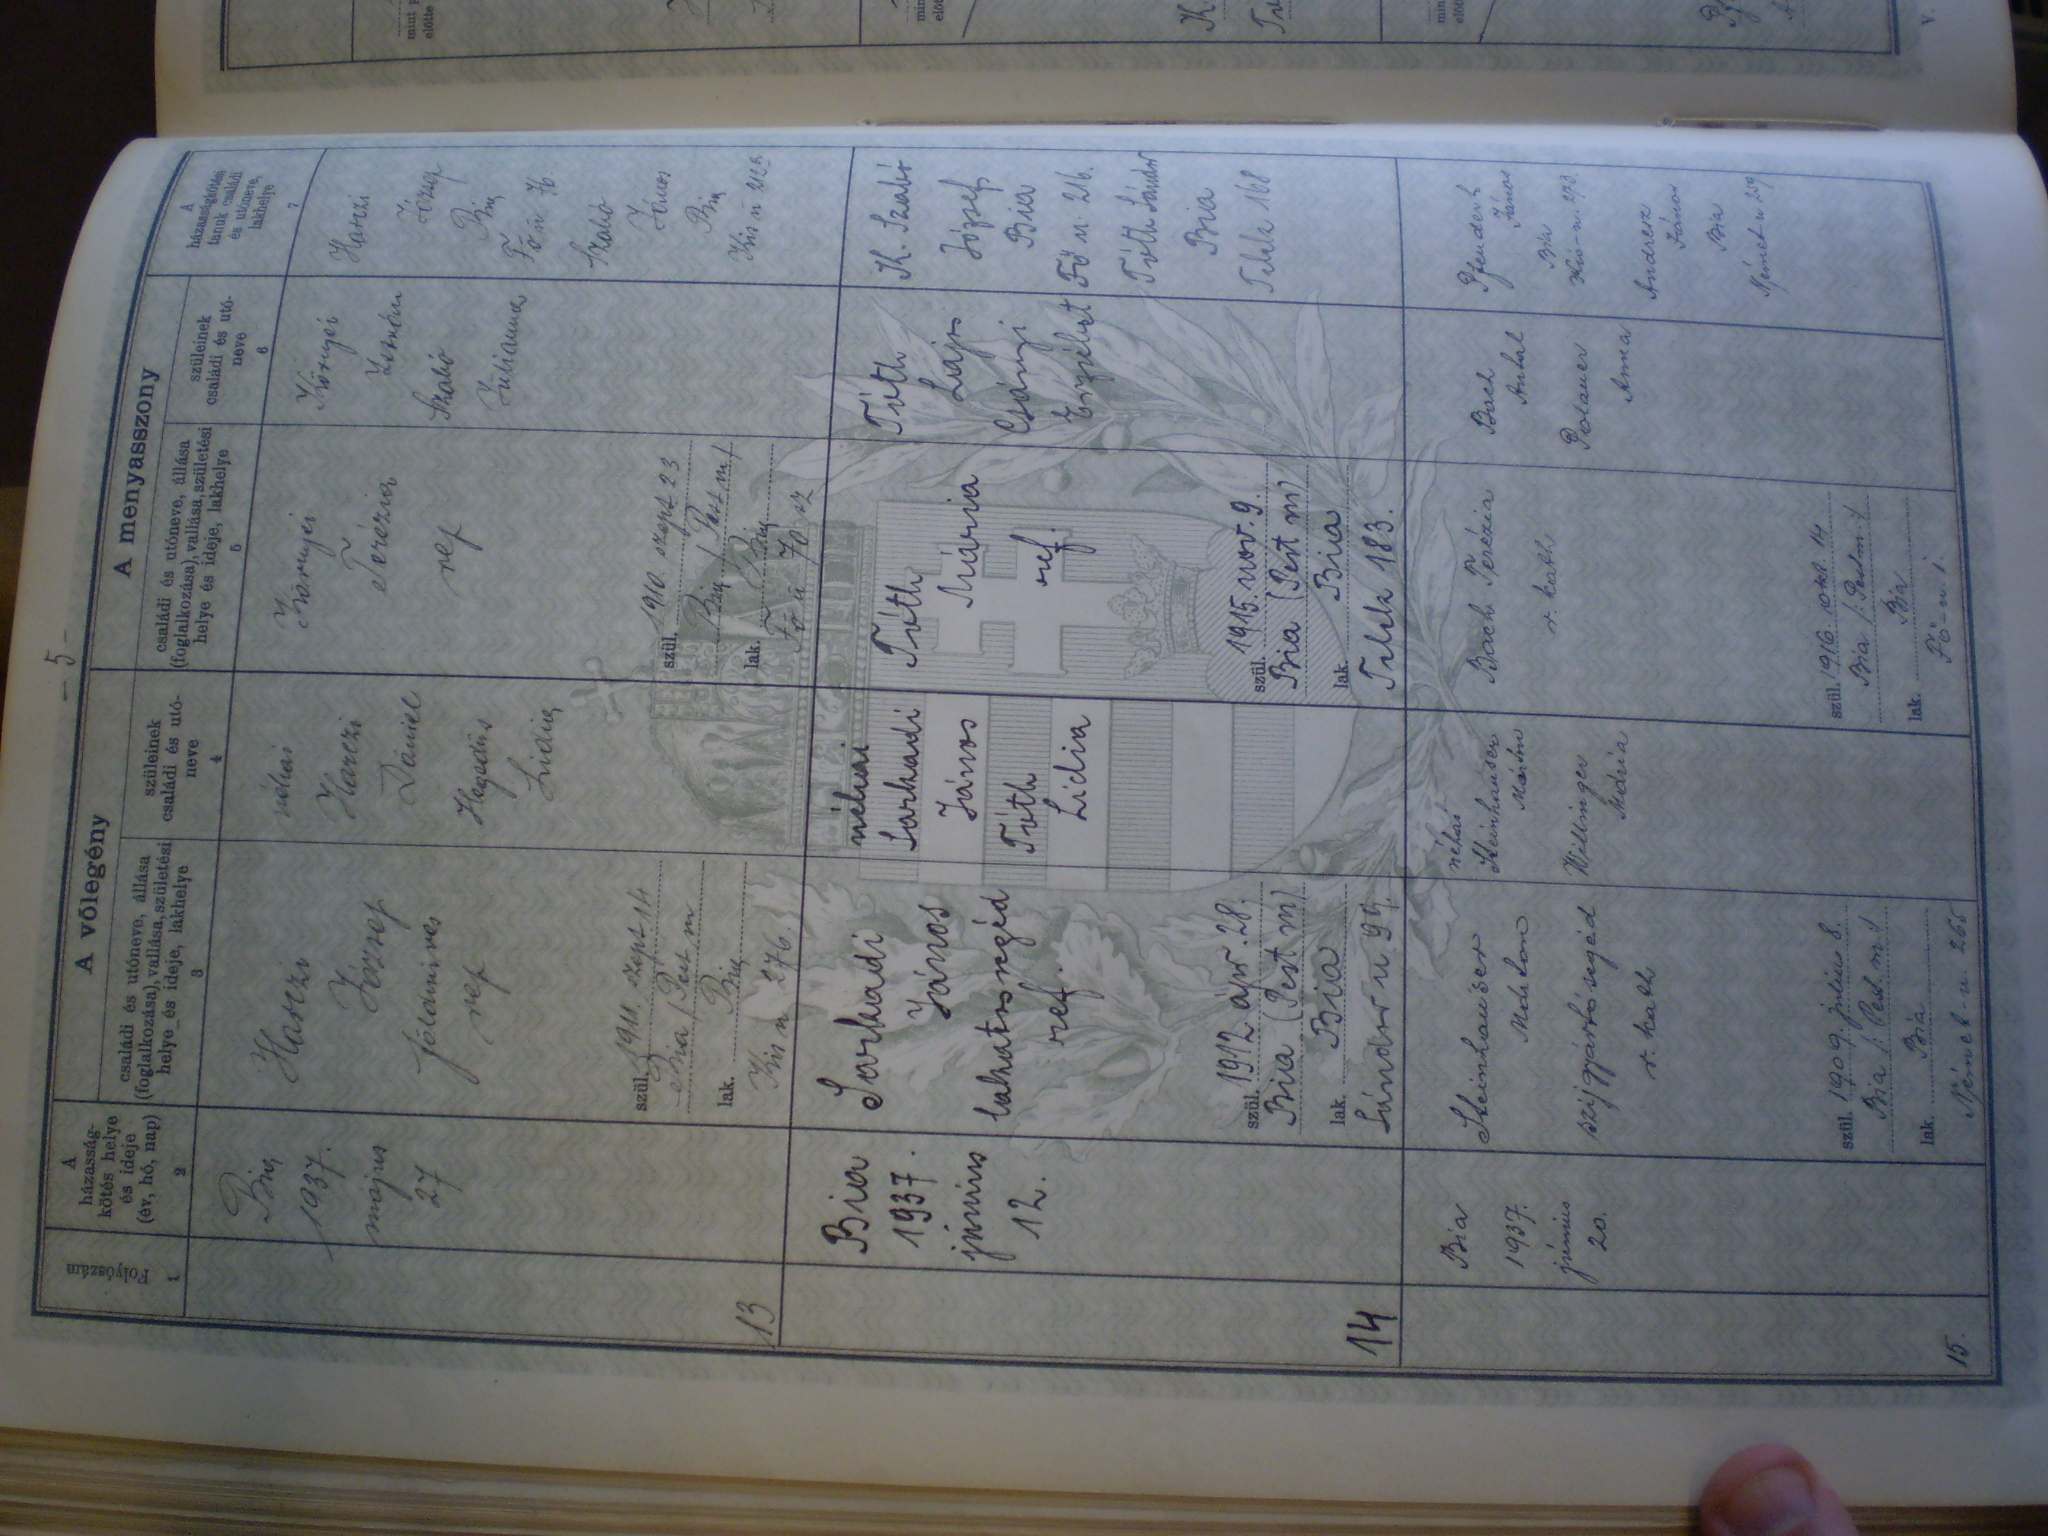 - 5 -
A völegény
A menyasszony
Folyószám
1
A
házasság-
kötés helye
és ideje
(év, hó, nap)
2
családi és utóneve, állása
(foglalkozása), vallása, születési
helye és ideje, lakhelye
3
szüleinek
családi és utó-
neve
4
családi és utóneve, állása
(foglalkozása), vallása, születési
helye és ideje, lakhelye
5
szüleinek
családi és utó-
neve
6
A
házasságkötési
tanuk családi
és utóneve,
lakhelye
7
13
Bia
1937.
május
27
Harzi
József
földmíves
ref
szül. 1911. szept 14
Bia / Pest m
lak. Bia
Kis u 276.
néhai
Harzi
Dániel
Hegedüs
Lidia
Környei
Terézia
ref
szül. 1910. szept 23
Bia / Pest m /
lak. Bia
Fő u 70 sz
Környei
István
Szabó
Julianna
Harzi
József
Bia
Fő u 76.
Szabó
János
Bia
Kis u
14
Bia
1937.
június
12.
Sarkadi
János
lakatossegéd
ref.
szül. 1912. ápr. 28.
Bia (Pest m)
lak. Bia
Sándor u. 95.
néhai
Sarkadi
János
Tóth
Lidia
Tóth
Mária
ref.
szül. 1915. nov. 9.
Bia (Pest m)
lak. Bia
Telek 183.
Tóth
Lajos
Csányi
Erzsébet
K. Szabó
József
Bia
Fő u. 216.
Tóth Sándor
Bia
Telek 168
15.
Bia
1937.
június
20.
Steinhauser
Márton
szijgyártósegéd
r. kath
szül. 1909. julius 8.
Bia /: Pest. m :/
lak. Bia
Német-u. 265
néhai
Steinhauser
Márton
Willinger
Mária
Bach Terézia
r. kath
szül. 1916. okt. 14
Bia /: Pestm :/
lak. Bia
Fő-u. 1.
Bach
Antal
Polauer
Anna
Pfenderl
János
Bia
Kis-u. 293
Andrez
János
Bia
Német-u 259
mint
előtte
K.
V.